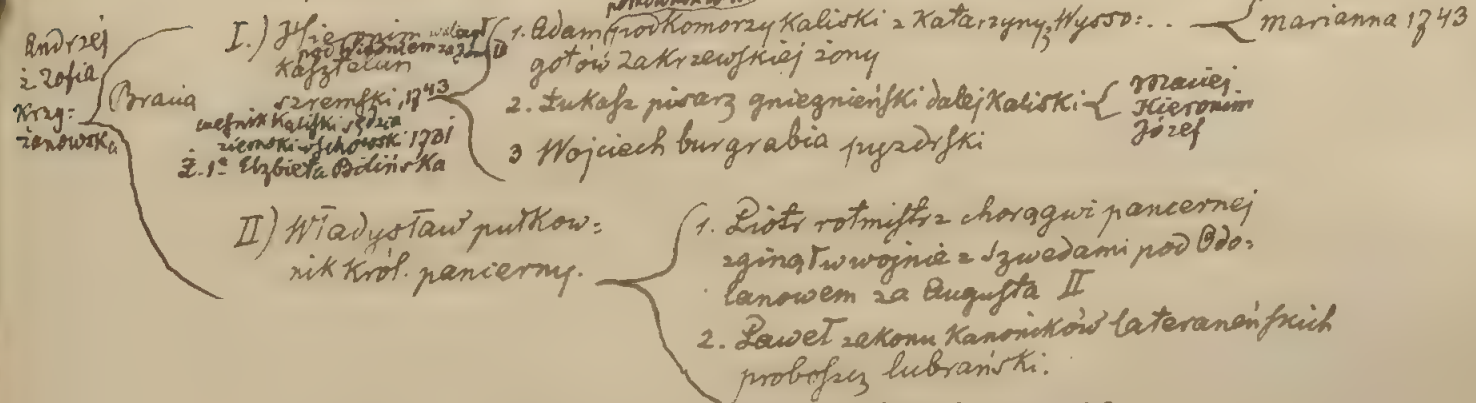 Andrzej
ż Zofia
Krzy:
żanowska
Bracia
I.) Hieronim walczył
pod Wiedniem za Jana III
Kasztelan
szremski, 1743
cześnik Kaliski sędzia
ziemski wschowski 1701
Ż. 1ª Elżbieta Bilińska
1. Adam podkomorzy Kaliski z Katarzyny, Wysso: . .
gotów Zakrzewskiej żony
marianna 1743
2. Łukasz pisarz gnieznieński dalej Kaliski
Maciej.
Hieronim
Józef
3 Wojciech burgrabia pyzdrski
II) Władysław pułkow:
nik Król. pancerny.
1. Piotr rotmistrz chorągwi pancernej
zginął w wojnie z Szwedami pod Odo:
lanowem za Augusta II
2. Paweł zakonu Kanoników lateraneńskich
proboszcz lubrański.